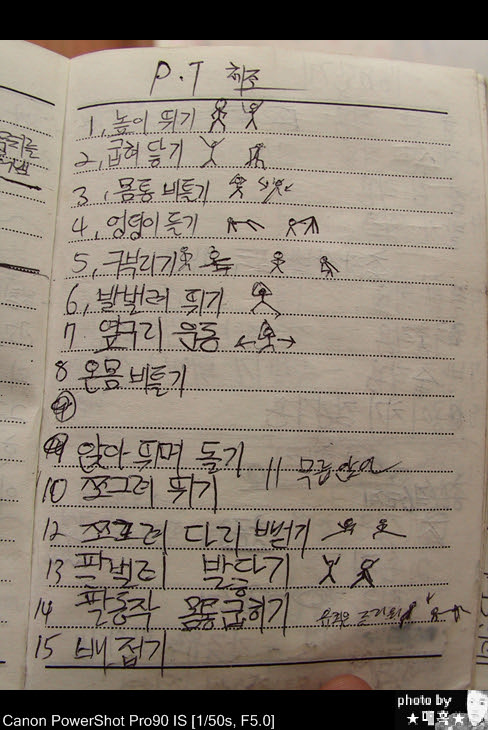 P.T 체조
1, 높이 뛰기
2, 굽혀 닿기
3, 몸통 비틀기
4, 엉덩이 들기
5, 구부리기
6, 발벌려 뛰기
7 옆구리 운동
8 온몸 비틀기
9
9 앉아 뛰며 돌기
11 무릎
10 쪼그려 뛰기
12 쪼그려 다리 뻗기
13 팔벌려 발닫기
14 팔동작 몸통굽히기
15 배 접기
photo by
★매혹★
Canon PowerShot Pro90 IS [1/50s, F5.0]